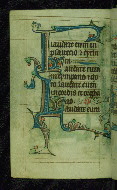 Laudate eum in
psalterio et cytha
ra
Laudate eum
in tympano et cho
ro laudate eum
in cordis et orga
no
Laudate eum